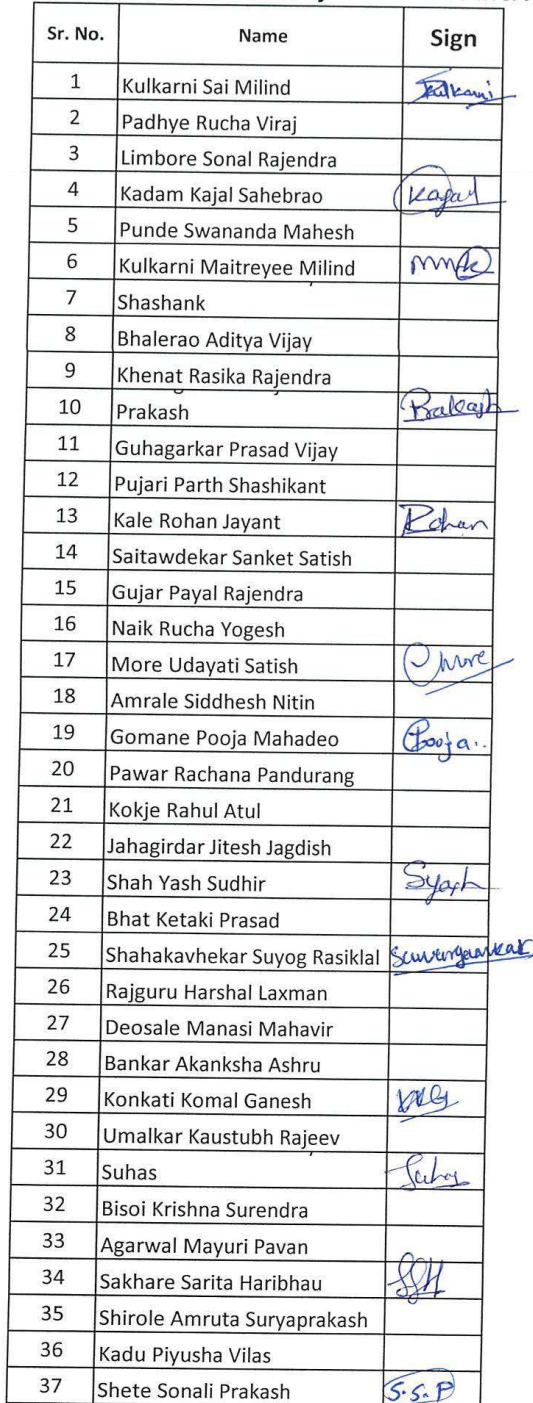 Sr. No. Name Sign
1 Kulkarni Sai Milind Kulkarni
2 Padhye Rucha Viraj
3 Limbore Sonal Rajendra
4 Kadam Kajal Sahebrao Kajal
5 Punde Swananda Mahesh
6 Kulkarni Maitreyee Milind MMK
7 Shashank
8 Bhalerao Aditya Vijay
9 Khenat Rasika Rajendra
10 Prakash Prakash
11 Guhagarkar Prasad Vijay
12 Pujari Parth Shashikant
13 Kale Rohan Jayant Rohan
14 Saitawdekar Sanket Satish
15 Gujar Payal Rajendra
16 Naik Rucha Yogesh
17 More Udayati Satish More
18 Amrale Siddhesh Nitin
19 Gomane Pooja Mahadeo Pooja..
20 Pawar Rachana Pandurang
21 Kokje Rahul Atul
22 Jahagirdar Jitesh Jagdish
23 Shah Yash Sudhir Syash
24 Bhat Ketaki Prasad
25 Shahakavhekar Suyog Rasiklal
26 Rajguru Harshal Laxman
27 Deosale Manasi Mahavir
28 Bankar Akanksha Ashru
29 Konkati Komal Ganesh KKG
30 Umalkar Kaustubh Rajeev
31 Suhas Suhas
32 Bisoi Krishna Surendra
33 Agarwal Mayuri Pavan
34 Sakhare Sarita Haribhau SSH
35 Shirole Amruta Suryaprakash
36 Kadu Piyusha Vilas
37 Shete Sonali Prakash S.S.P